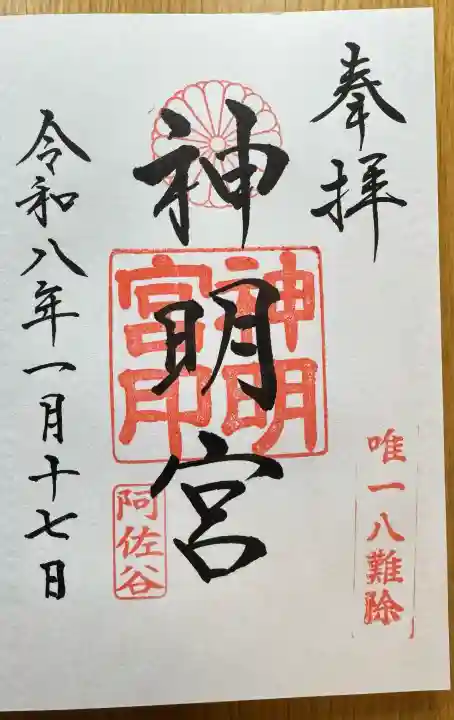 奉拝
唯一八難除
神明宮
神明
宮印
阿佐谷
令和八年一月十七日